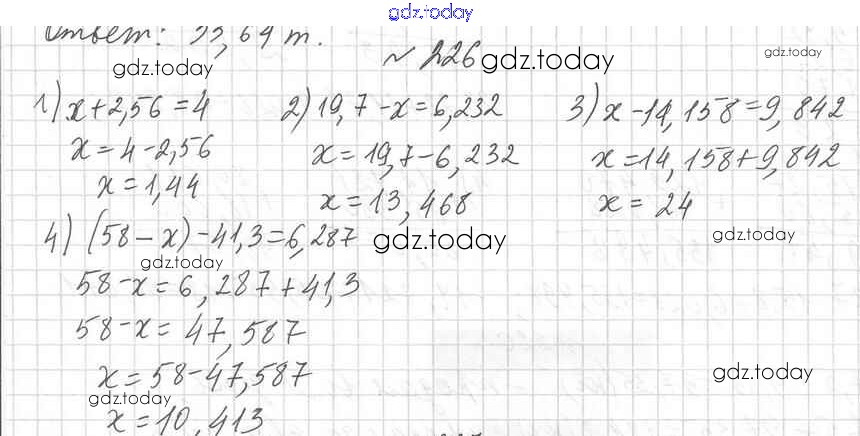 gdz.today
Ответ: 33,64 т.
gdz.today
№ 226 gdz.today
gdz.today
1) x + 2,56 = 4
2) 19,7 - x = 6,232
3) x - 14,158 = 9,842
x = 4 - 2,56
x = 19,7 - 6,232
x = 14,158 + 9,842
gdz.today
gdz.today
gdz.today
x = 1,44
x = 13,468
x = 24
4) (58 - x) - 41,3 = 6,287
gdz.today
gdz.today
gdz.today
58 - x = 6,287 + 41,3
58 - x = 47,587
gdz.today
x = 58 - 47,587
gdz.today
gdz.today
x = 10,413